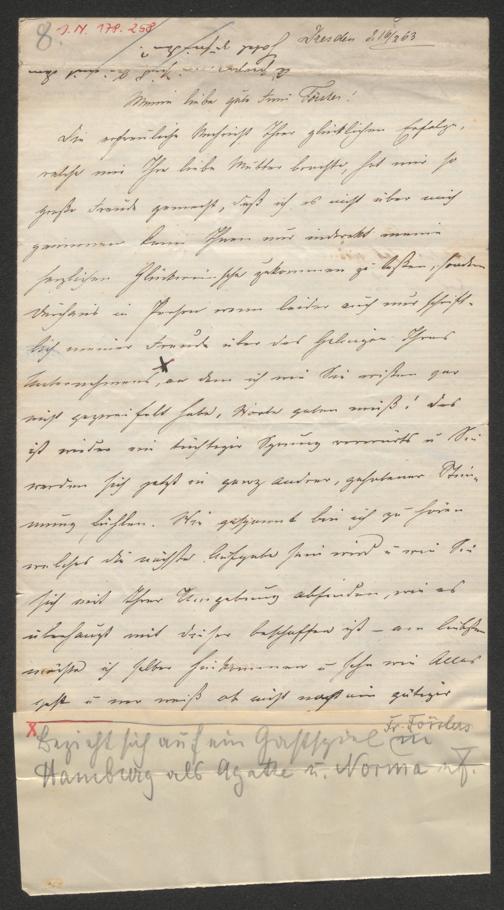 8. J.N. 178.258
Dresden d. 16/2 63
Meine liebe gute Frau Förster!
Die erfreuliche Nachricht Ihrer glücklichen Erfolge,
welche mir Ihre liebe Mutter brachte, hat mir so
große Freude gemacht, daß ich es nicht über mich
gewinnen kann Ihnen nur indirekt meine
herzlichen Glückwünsche zukommen zu laßen, sondern
durchaus in Person wenn leider auch nur schrift-
lich meiner Freude über das Gelingen Ihres
Unternehmens, an dem ich wie Sie wißen gar
nicht gezweifelt habe, Worte geben muß! Das
ist wieder ein tüchtiger Sprung vorwärts u Sie
werden sich jetzt in ganz andrer, gehobener Stim-
mung fühlen. Wie gespannt bin ich zu hören
welches die nächste Aufgabe sein wird u wie Sie
sich mit Ihrer Umgebung abfinden, wie es
überhaupt mit dieser beschaffen ist – am liebsten
möchte ich selber hinkommen u sehn wie Alles
geht u wer weiß ob nicht noch ein gütiger
x Bezieht sich auf ein Gastspiel Fr. Försters in
Hamburg als Agathe u. Norma